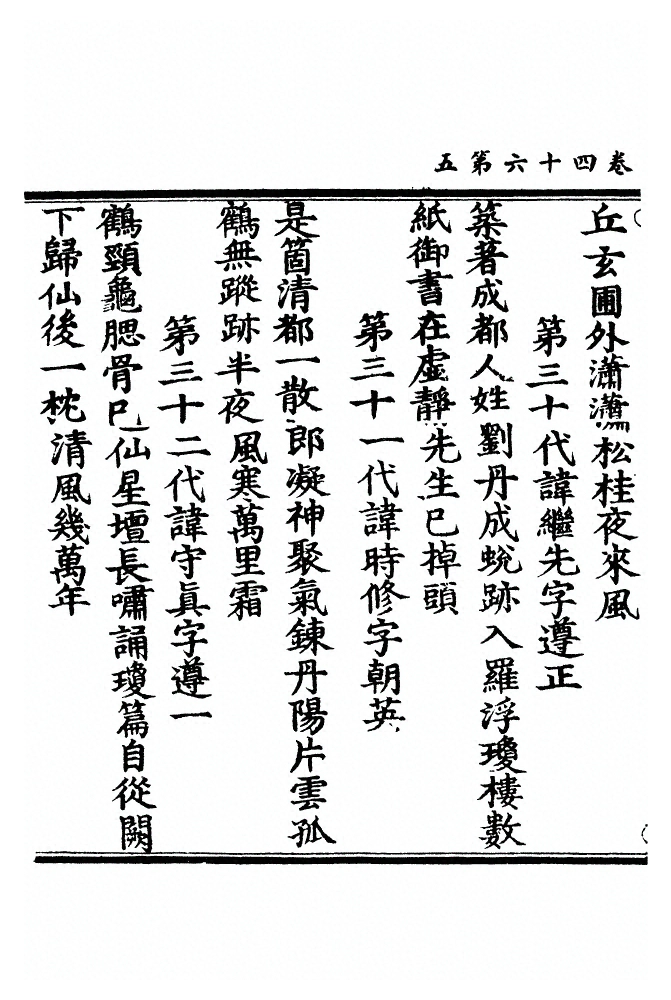 卷四十六第五
丘玄圃外瀟瀟松桂夜來風
第三十代諱繼先字遵正
築著成都人姓劉丹成蛻跡入羅浮瓊樓數
紙御書在虛靜先生已掉頭
第三十一代諱時修字朝英
是箇清都一散郎凝神聚氣鍊丹陽片雲孤
鶴無蹤跡半夜風寒萬里霜
第三十二代諱守眞字遵一
鶴頸龜腮骨已仙星壇長嘯誦瓊篇自從闕
下歸仙後一枕清風幾萬年